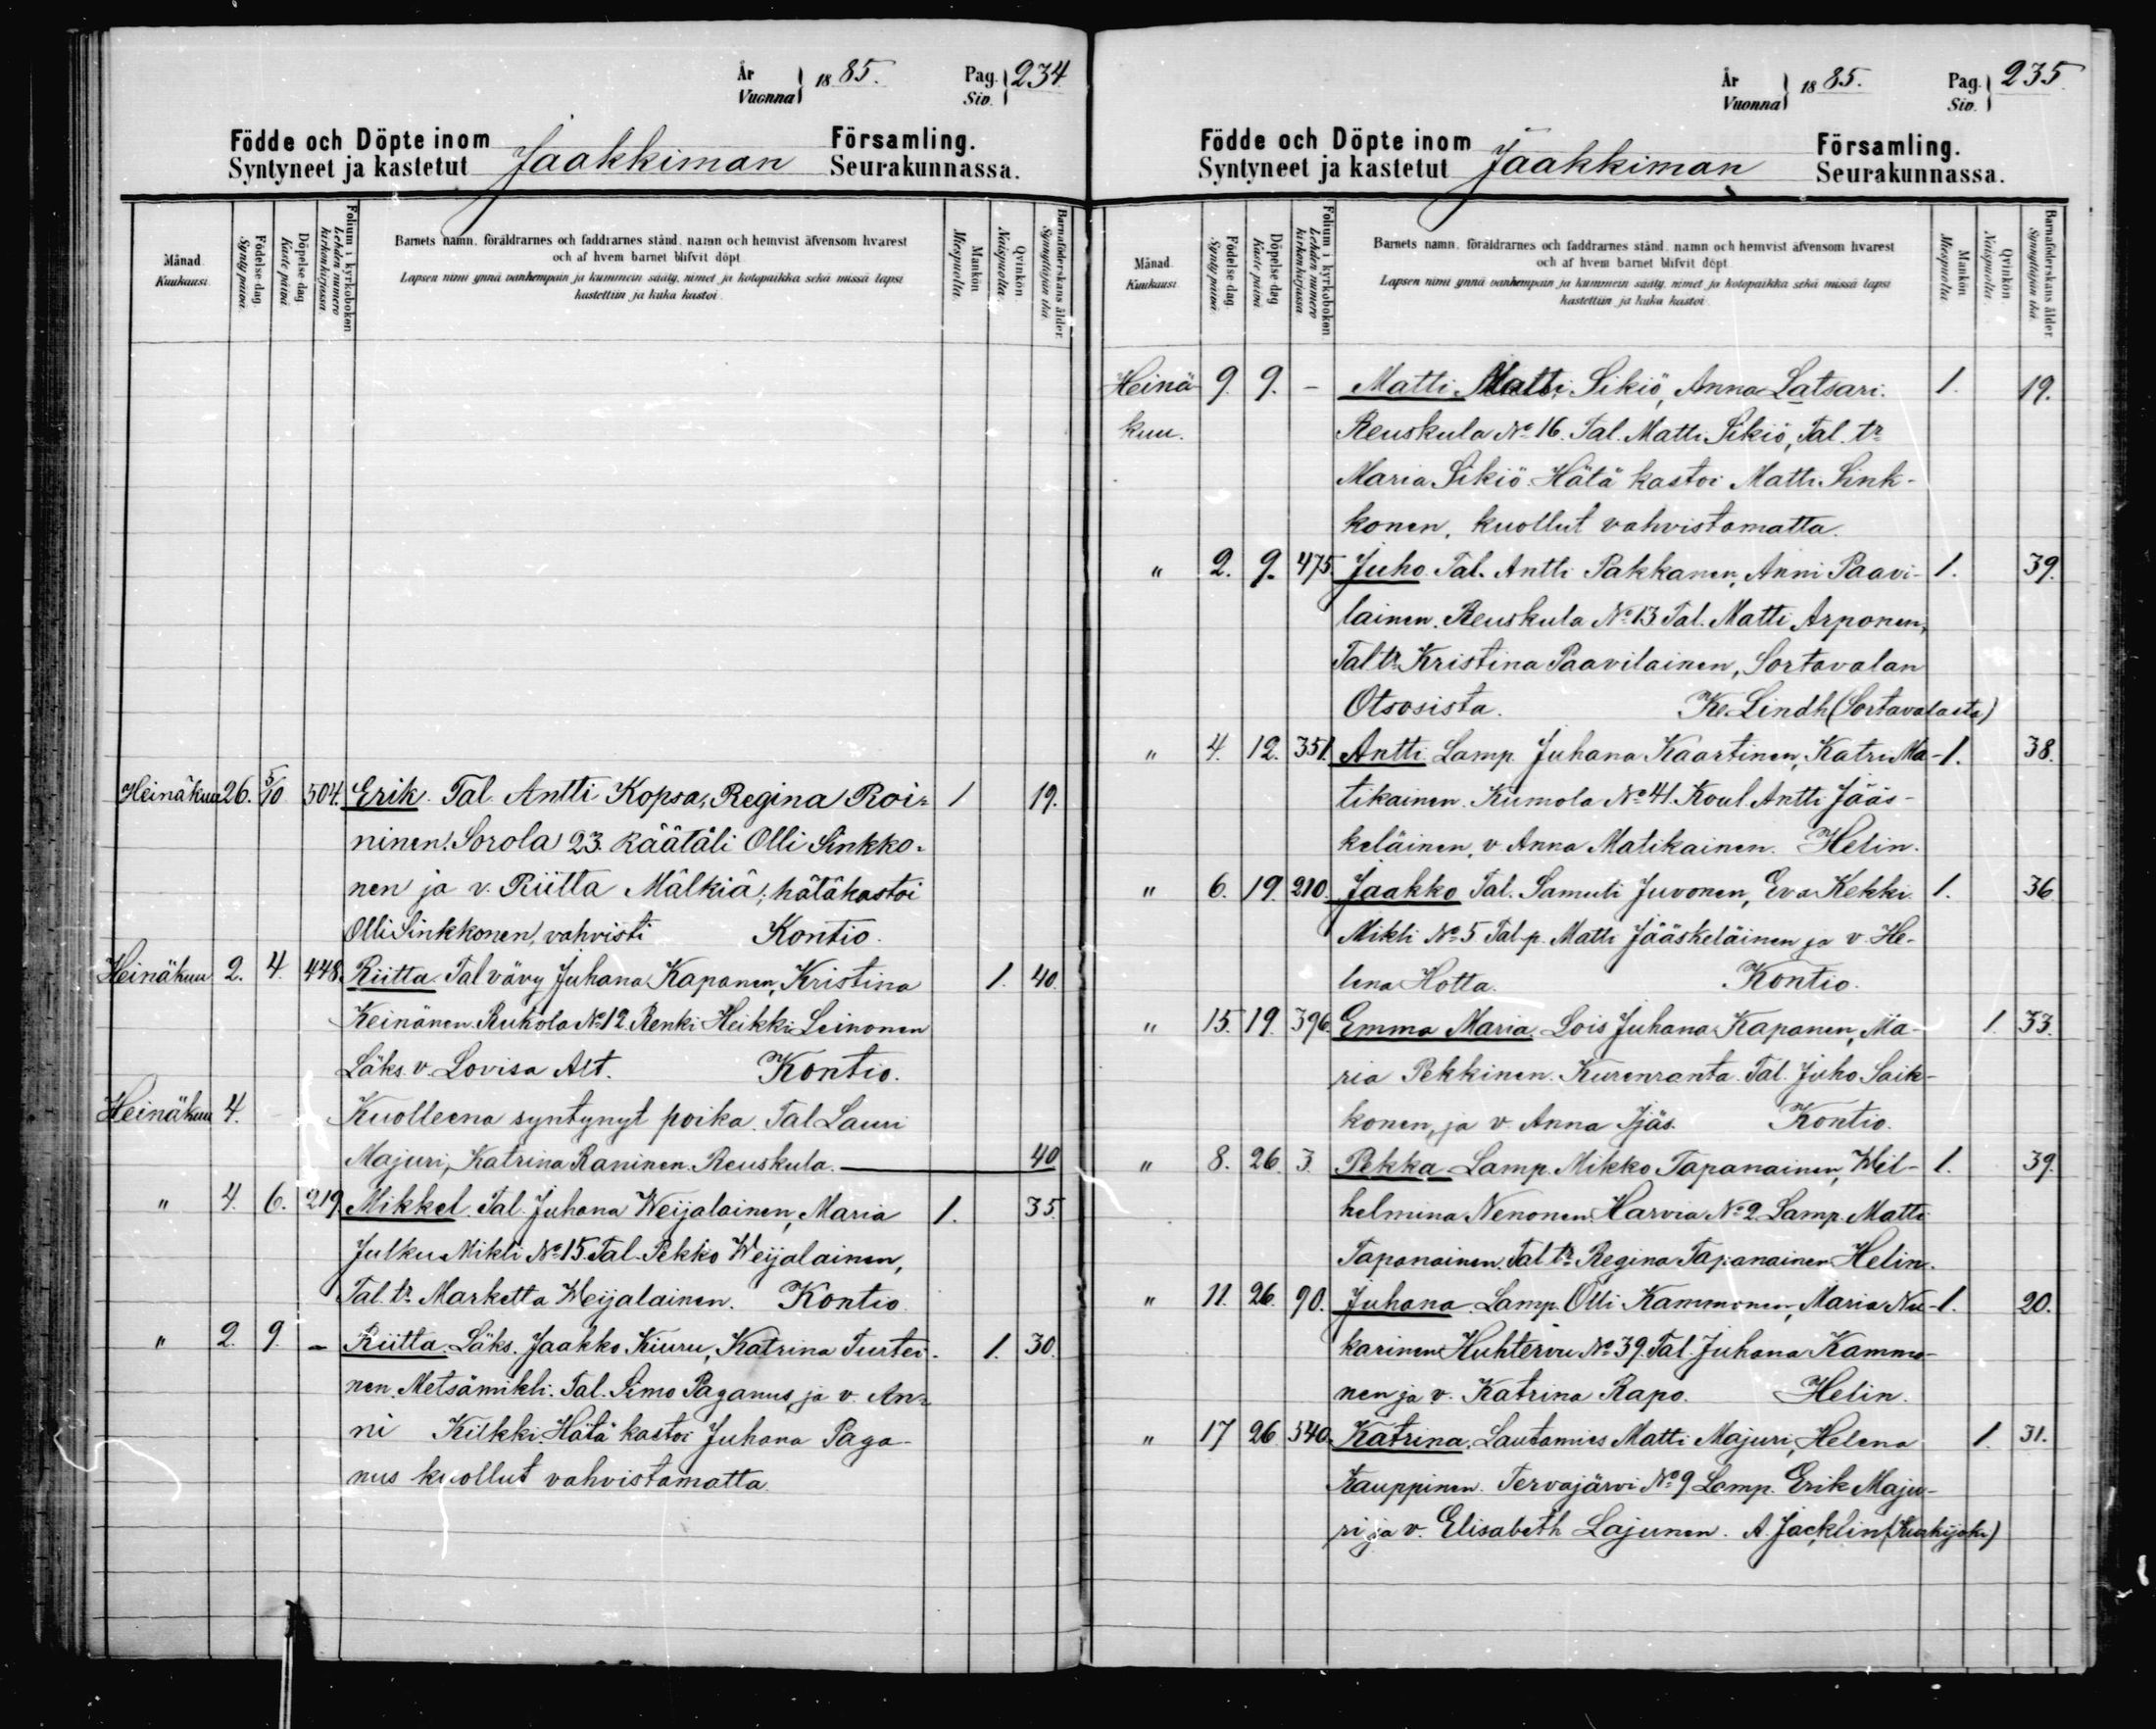 År
Vuonna } 1885. Pag. Siv. } 234
Födde och Döpte inom Församling.
Syntyneet ja kastetut Jaakkiman Seurakunnassa.
Månad. Kuukausi.
Födelse dag. Synty päivä.
Döpelse dag Kaste päivä
Folium i kyrkoboken Lehden numero kirkonkirjassa
Barnets namn, föräldrarnes och faddrarnes stånd, namn och hemvist äfvensom hvarest
och af hvem barnet blifvit döpt.
Lapsen nimi ynnä vanhempain ja kummein sääty, nimet ja kotopaikka sekä missä lapsi
kastettiin ja kuka kastoi.
Mankön Miespuolia.
Qvinkön Naispuolia.
Barnaföderskans ålder. Synnyttäjän ikä.
Heinäkuu 26. 5/10 504. Erik. Tal. Antti Kopsa, Regina Roi- 1 19.
ninen. Sorola 23. Räätäli Olli Sinkko-
nen ja v. Riitta Mälkiä; hätäkastoi
Olli Sinkkonen, vahvisti Kontio.
Heinäkuu 2. 4. 448. Riitta. Tal vävy Juhana Kapanen, Kristina 1. 40.
Keinänen. Ruhola No 12. Renki Heikki Leinonen
Läks. v. Lovisa Alt. Kontio.
Heinäkuu 4. Kuolleena syntynyt poika. Tal Lauri
Majuri, Katrina Raninen. Reuskula. 40
" 4. 6. 219. Mikkel. Tal. Juhana Weijalainen, Maria 1. 35.
Julku Mikli No 15. Tal. Pekko Weijalainen,
Tal. tr Marketta Weijalainen. Kontio.
" 2. 9. - Riitta. Läks. Jaakko Kiuru, Katrina Turtei- 1. 30.
nen. Metsämikli. Tal. Simo Paganus ja v. An-
ni Kilkki. Hätä kastoi Juhana Paga-
nus kuollut vahvistamatta.
År
Vuonna } 1885. Pag. Siv. } 235
Födde och Döpte inom Församling.
Syntyneet ja kastetut Jaakkiman Seurakunnassa.
Månad. Kuukausi.
Födelse dag. Synty päivä.
Döpelse dag Kaste päivä
Folium i kyrkoboken Lehden numero kirkonkirjassa
Barnets namn, föräldrarnes och faddrarnes stånd, namn och hemvist äfvensom hvarest
och af hvem barnet blifvit döpt.
Lapsen nimi ynnä vanhempain ja kummein sääty, nimet ja kotopaikka sekä missä lapsi
kastettiin ja kuka kastoi.
Mankön Miespuolia.
Qvinkön Naispuolia.
Barnaföderskans ålder. Synnyttäjän ikä.
Heinä- 9. 9. - Matti. Matti Sikiö, Anna Latsari. 1. 19.
kuu. Reuskula No 16. Tal. Matti Sikiö, Tal. tr
Maria Sikiö. Hätä kastoi Matti Sink-
konen, kuollut vahvistamatta.
" 2. 9. 475. Juho. Tal. Antti Pakkanen, Anni Paavi- 1. 39.
lainen. Reuskula No 13 Tal. Matti Arponen,
Tal. tr Kristina Paavilainen, Sortavalan
Otsosista. Ke Lindh (Sortavalasta)
" 4. 12. 351. Antti. Lamp. Juhana Kaartinen, Katri Ma- 1. 38.
tikainen. Kumola No 41. Koul. Antti Jääs-
keläinen, v. Anna Matikainen. Helin.
" 6. 19. 210. Jaakko Tal. Samuli Juvonen, Eva Kekki. 1. 36
Mikli No 5 Tal. p. Matti Jääskeläinen ja v. He-
lena Hotta. Kontio.
" 15. 19. 396. Emma Maria. Lois Juhana Kapanen, Ma- 1. 33.
ria Pekkinen. Kurenranta. Tal. Juho Saik-
konen, ja v. Anna Ijäs. Kontio.
" 8. 26. 3. Pekka Lamp. Mikko Tapanainen, Wil- 1. 39.
helmina Nenonen. Harvia No 2 Lamp. Matti
Tapanainen. Tal. tr Regina Tapanainen Helin.
" 11. 26. 90. Juhana. Lamp. Olli Kammonen, Maria Nu- 1. 20.
karinen Huhtervu No 39. Tal. Juhana Kammo-
nen ja v. Katrina Rapo. Helin.
" 17 26 540. Katrina. Lautamies Matti Majuri, Helena 1. 31.
Kauppinen. Tervajärvi No 9 Lamp. Erik Maju-
ri ja v. Elisabeth Lajunen. A. Jacklin (Kurkijoki)